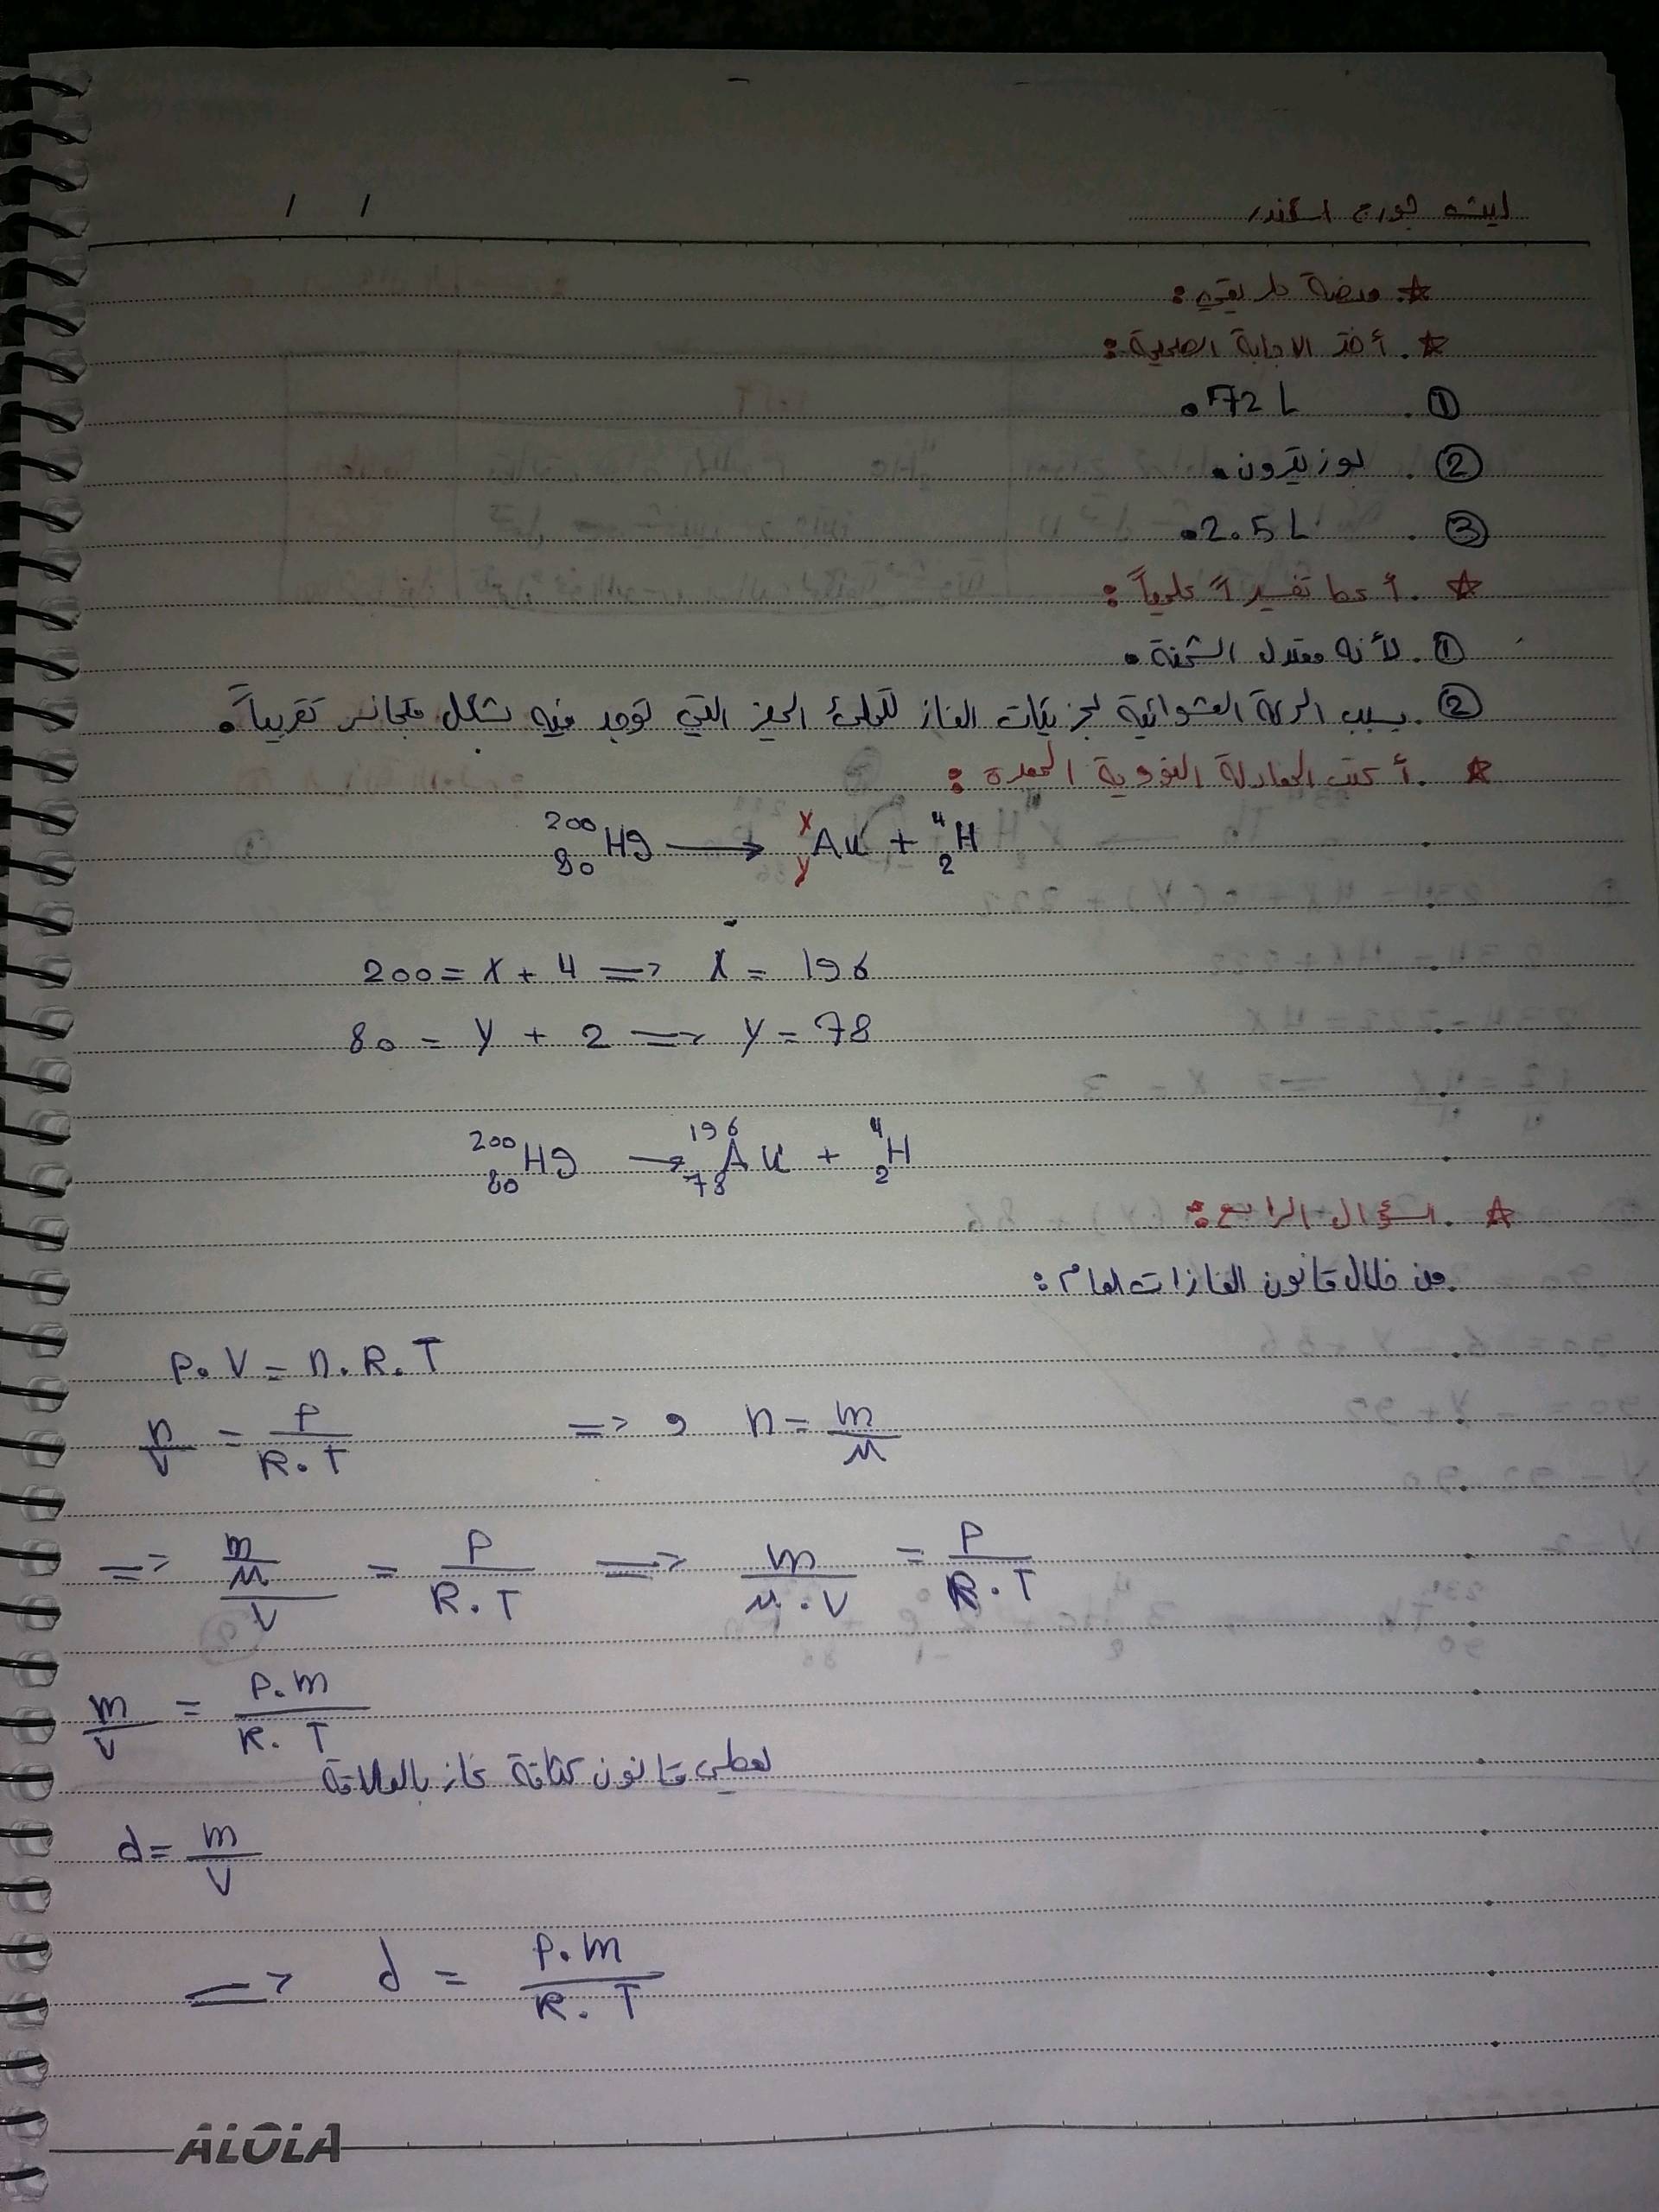 جورج اسكندر
/ /
☆. منصة طريقي:
☆. أختر الاجابة الصحيحة:
①. 72 L.
②. بوزيترون.
③. 2.5 L.
☆. أعط تفسيراً علمياً:
①. لأنه معتدل الشحنة.
②. بسبب الحركة العشوائية لجزيئات الغاز لتملئ الحيز التي توجد فيه بشكل متجانس تقريباً.
☆. أكتب المعادلة النووية المعبرة:
²⁰⁰₈₀Hg → ˣᵧAu + ⁴₂H
200 = X + 4 => X = 196
80 = y + 2 => y = 78
²⁰⁰₈₀Hg → ¹⁹⁶₇₈Au + ⁴₂H
☆. السؤال الرابع:
من خلال قانون الغازات العام:
P.V = n.R.T
n/V = P/R.T => , n = m/M
=> (m/M)/V = P/R.T => m/M.V = P/R.T
m/V = P.m/R.T
تعطى قانون كثافة غاز بالعلاقة
d = m/V
=> d = P.m/R.T
ALOLA